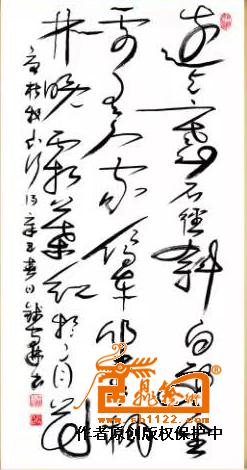 远上寒山石径斜白云生
处有人家停车坐爱枫
林晚霜叶红于二月花
杜牧山行诗
作者原创版权保护中